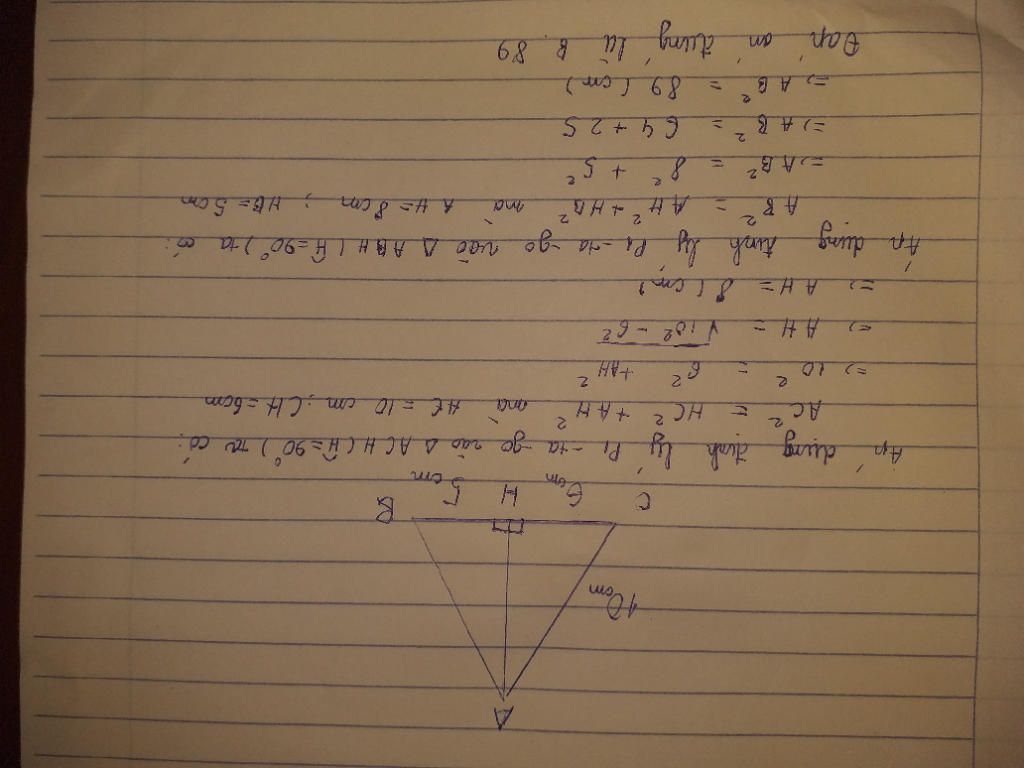 A
10cm
C 6cm H 5cm B
Áp dụng định lý Pi-ta-go vào Δ ACH (Ĥ=90°) ta có:
AC² = HC² + AH² mà AC = 10 cm; CH=6cm
=> 10² = 6² + AH²
=> AH = √10² - 6²
=> AH = 8 (cm)
Áp dụng định lý Pi-ta-go vào Δ ABH (Ĥ=90°) ta có:
AB² = AH² + HB² mà AH = 8cm; HB = 5cm
=> AB² = 8² + 5²
=> AB² = 64 + 25
=> AB² = 89 (cm)
Đáp án đúng là B. 89